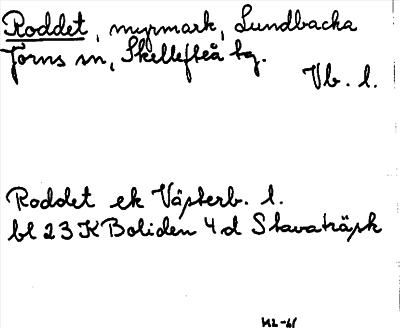 Roddet, myrmark, Lundbacka
Jörns sn, Skellefteå tg.
Vb. l.
Roddet ek Västerb. l.
bl 23 K Boliden 4 d Stavaträsk
ML-61